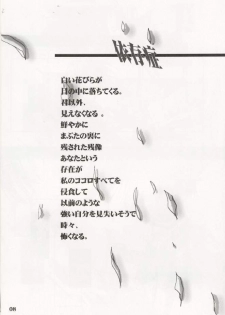 依存症
白い花びらが
目の中に落ちてくる。
君以外、
見えなくなる。
鮮やかに
まぶたの裏に
残された残像
あなたという
存在が
私のココロすべてを
侵食して
以前のような
強い自分を見失いそうで
時々、
怖くなる。
08